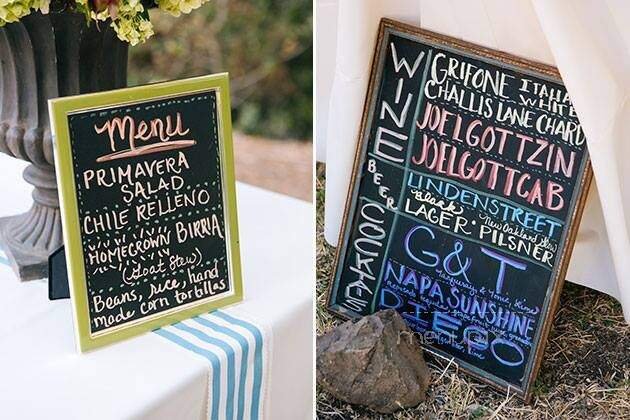 Menu
PRIMAVERA
SALAD
CHILE RELLENO
HOMEGROWN BIRRIA
(Goat Stew)
Beans, rice, hand
made corn tortillas
WINE
GRIFONE ITALIAN WHITE
CHALLIS LANE CHARD
JOEL GOTT ZIN
JOEL GOTT CAB
BEER
LINDEN STREET
Black
LAGER · PILSNER
COCKTAILS
G&T
Tanqueray & tonic, lime
NAPA SUNSHINE
DIEGO
menu